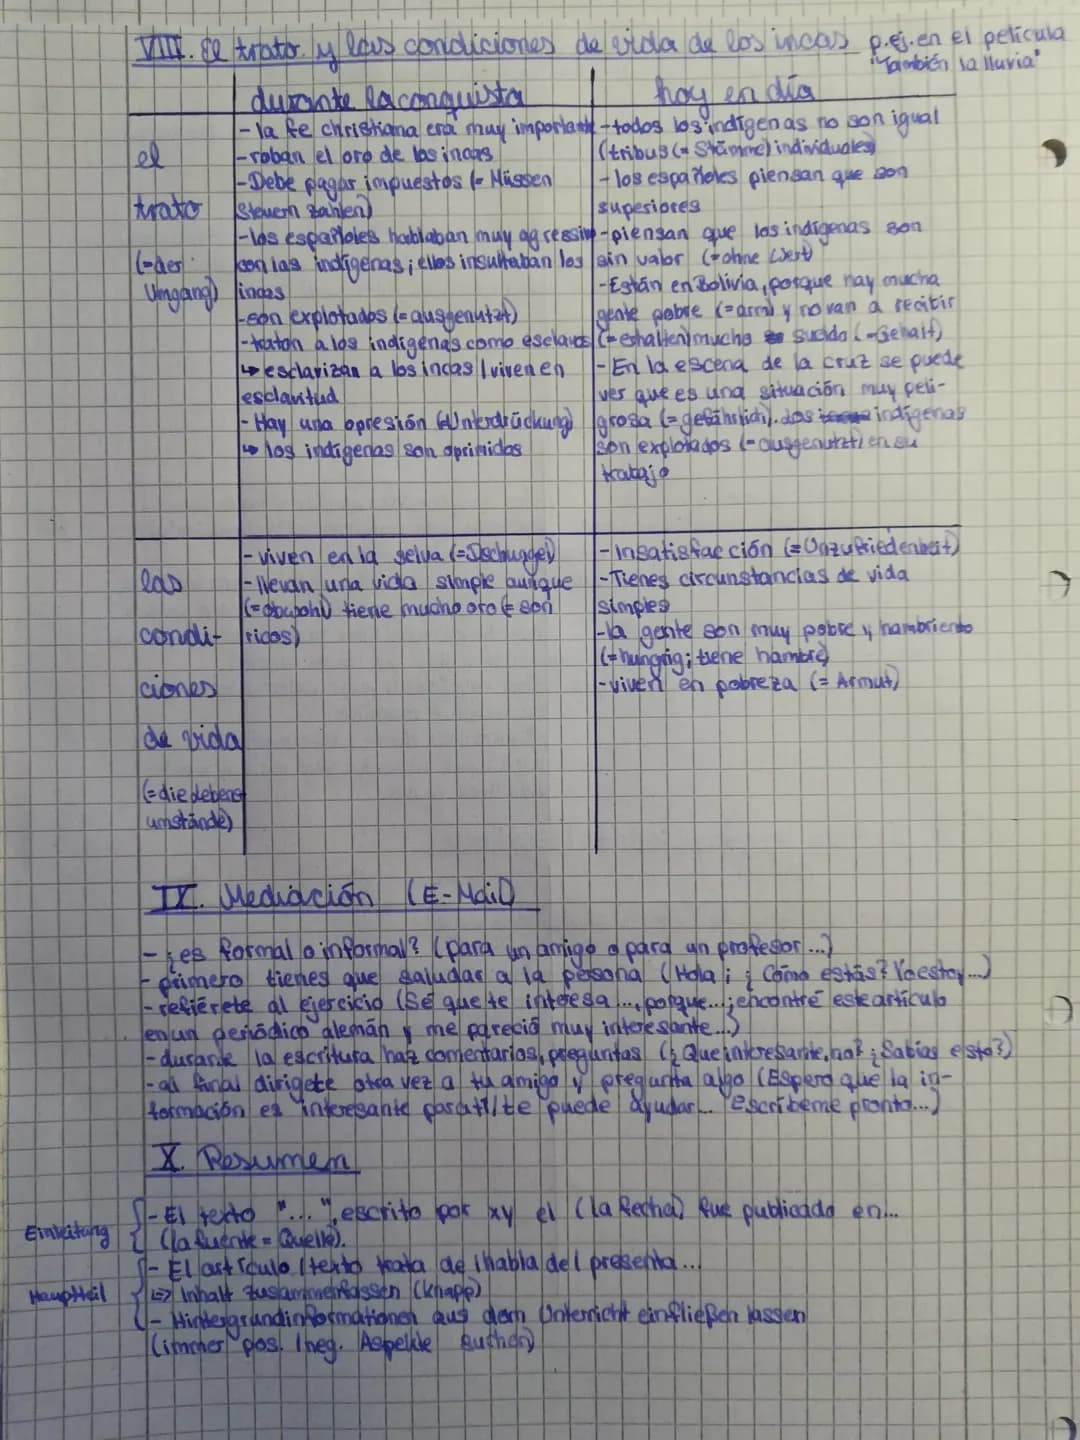 VIII. El trato y las condiciones de vida de los incas p.ej. en el película
"También la lluvia"
durante la conquista
hoy en día
el
trato
(=der
Umgang)
- la fe christiana era muy importante
- roban el oro de los incas
- Debe pagar impuestos (= Müssen
Steuern zahlen)
- los españoles hablaban muy agressivo
con las indígenas; ellos insultaban los
incas
- son explotados (= ausgenutzt)
- tratan a los indígenas como esclavos
↳ esclavizan a los incas / viven en
esclavitud
- Hay una opresión (=Unterdrückung)
↳ los indígenas son oprimidos
- todos los indígenas no son igual
(tribus (= Stämme) individuales)
- los españoles piensan que son
superiores
- piensan que los indígenas son
sin valor (= ohne Wert)
- Están en Bolivia, porque hay mucha
gente pobre (= arm) y no van a recibir
(= erhalten) mucho sueldo (= Gehalt)
- En la escena de la cruz se puede
ver que es una situación muy peli-
grosa (= gefährlich). Los indígenas
son explotados (= ausgenutzt) en su
trabajo
las
condi-
ciones
de vida
(= die Lebens
umstände)
- viven en la selva (= Dschungel)
- llevan una vida simple aunque
(= obwohl) tiene mucho oro (= son
ricos)
- Insatisfacción (= Unzufriedenheit)
- Tienes circunstancias de vida
simples
- la gente son muy pobre y hambriento
(= hungrig; tiene hambre)
- viven en pobreza (= Armut)
IX. Mediación (E-Mail)
- ¿es formal o informal? (para un amigo o para un profesor...)
- primero tienes que saludar a la persona (Hola; ¿Cómo estás? Yo estoy...)
- refiérete al ejercicio (Sé que te interesa..., porque...; encontré este artículo
en un periódico alemán y me pareció muy interesante...)
- durante la escritura haz comentarios, preguntas (¿Que interesante, no? ¿Sabías esto?)
- al final dirigete otra vez a tu amigo y pregunta algo (Espero que la in-
formación es interesante para ti/te puede ayudar... Escríbeme pronto...)
X. Resumen
Einleitung
- El texto "...", escrito por xy el (la fecha) fue publicado en...
(la fuente = Quelle).
Hauptteil
- El artículo / texto trata de / habla de / presenta...
↳ Inhalt zusammenfassen (knapp)
- Hintergrundinformationen aus dem Unterricht einfließen lassen
(immer pos. / neg. Aspekte suchen)